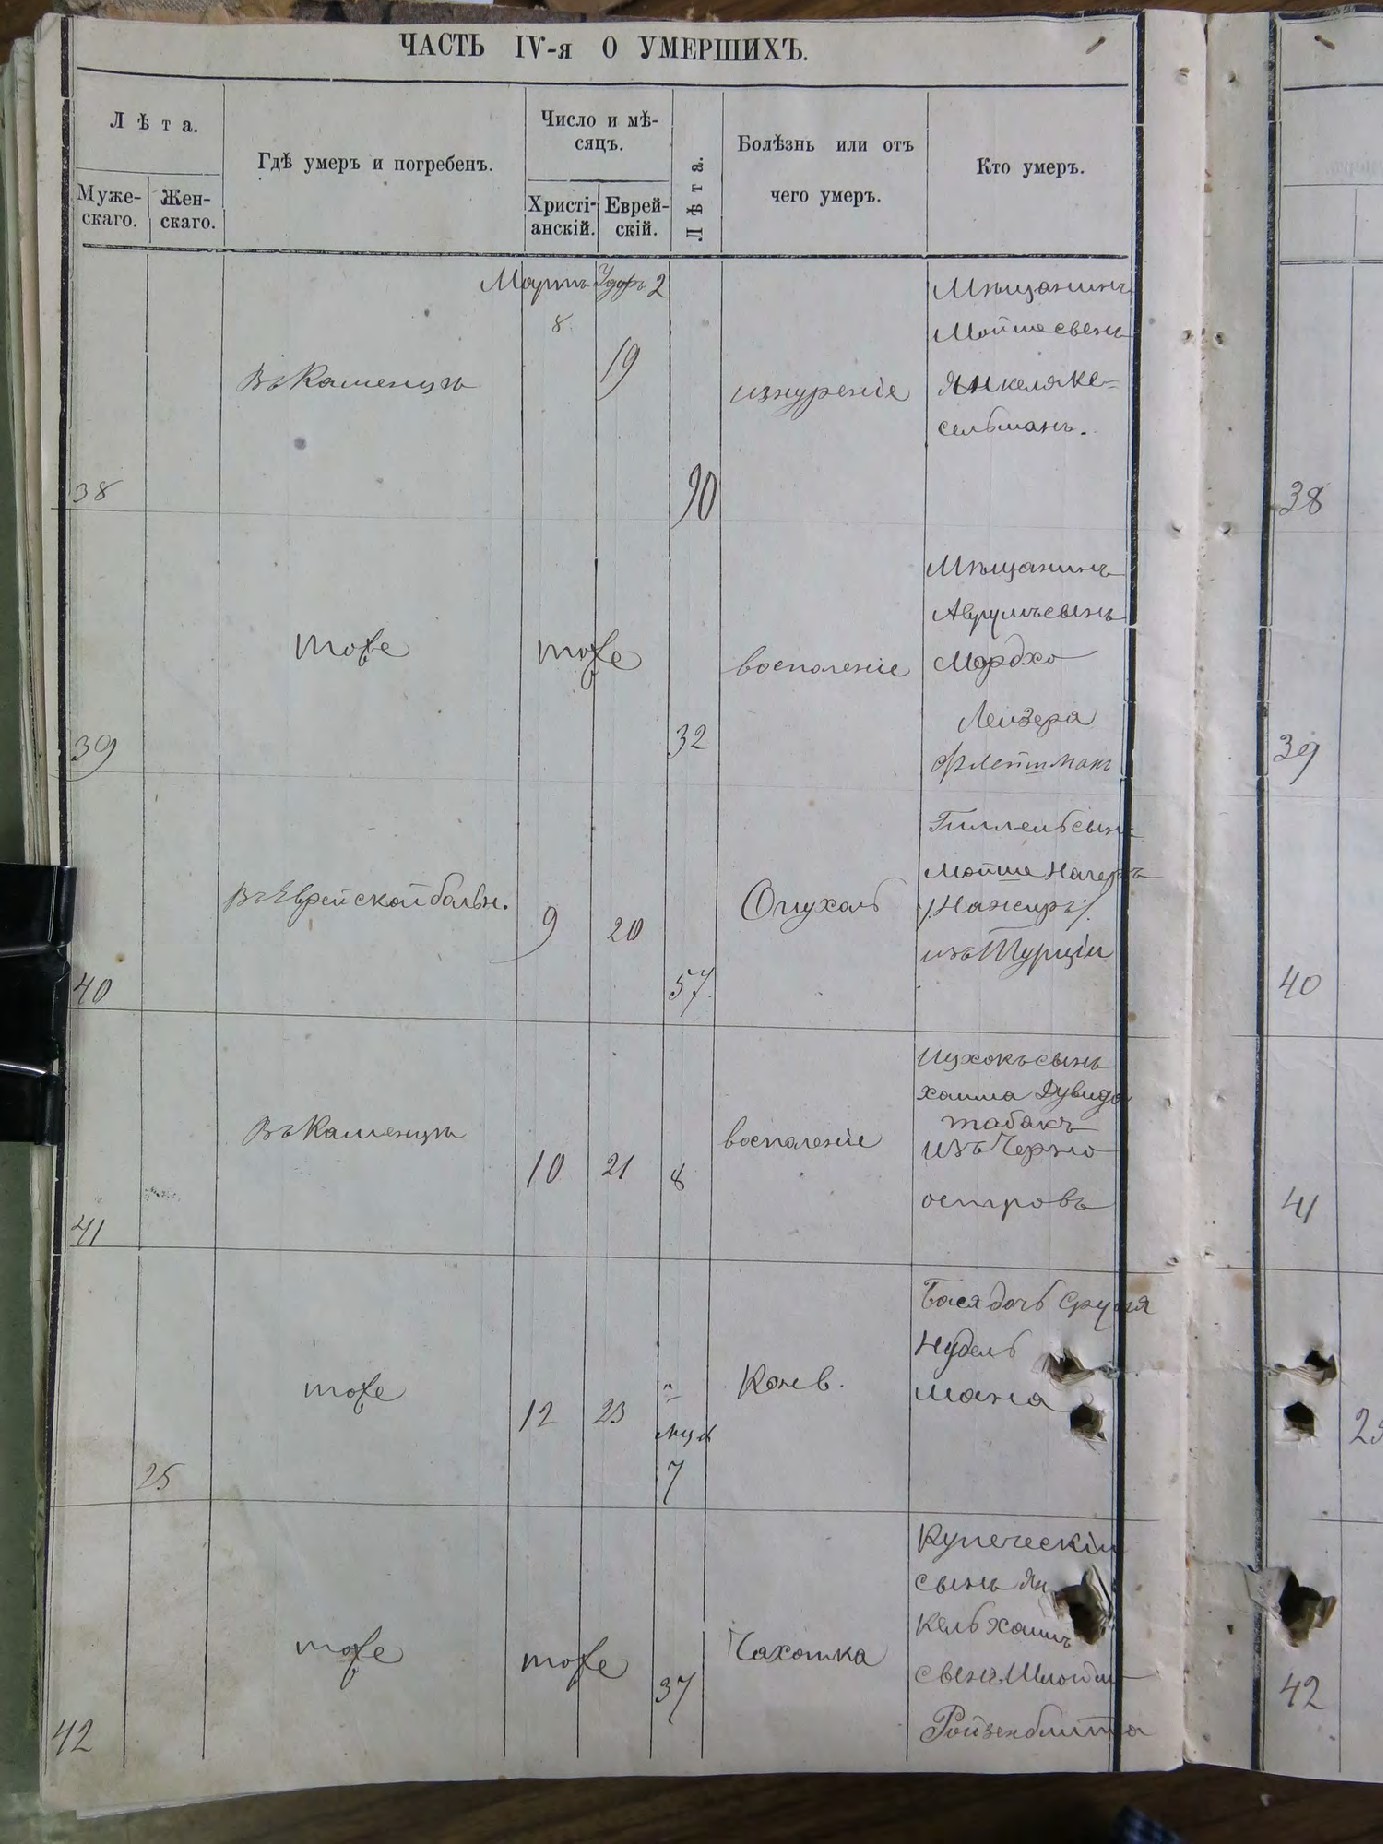 ЧАСТЬ IV-я О УМЕРШИХЪ.
Лѣта.
Муже-
скаго.
Жен-
скаго.
Гдѣ умеръ и погребенъ.
Число и мѣ-
сяцъ.
Христі-
анскій.
Еврей-
скій.
Лѣта.
Болѣзнь или отъ
чего умеръ.
Кто умеръ.
38
Въ Каменцѣ
Мартъ
8
2
19
90
изнуреніе
Мѣщанинъ
Мойше сынъ
Янкеля Ке-
сельманъ.
38
39
тоже
тоже
32
воспаленіе
Мѣщанинъ
Аврумъ сынъ
Мордхо
Лейзера
39
40
Въ Еврейской больн.
9
20
57
Опухоль
Гиллель сынъ
Мойше
изъ Турціи
40
41
Въ Каменцѣ
10
21
8
воспаленіе
Ицхокъ сынъ
Хаима Дувида
табакъ
изъ Черно
острова
41
25
тоже
12
23
7
Бася дочь Сруля
Нудель
мана
42
тоже
тоже
37
Чахотка
Купеческій
сынъ Ян
кель Хаимъ
сынъ
Ройзенблита
42